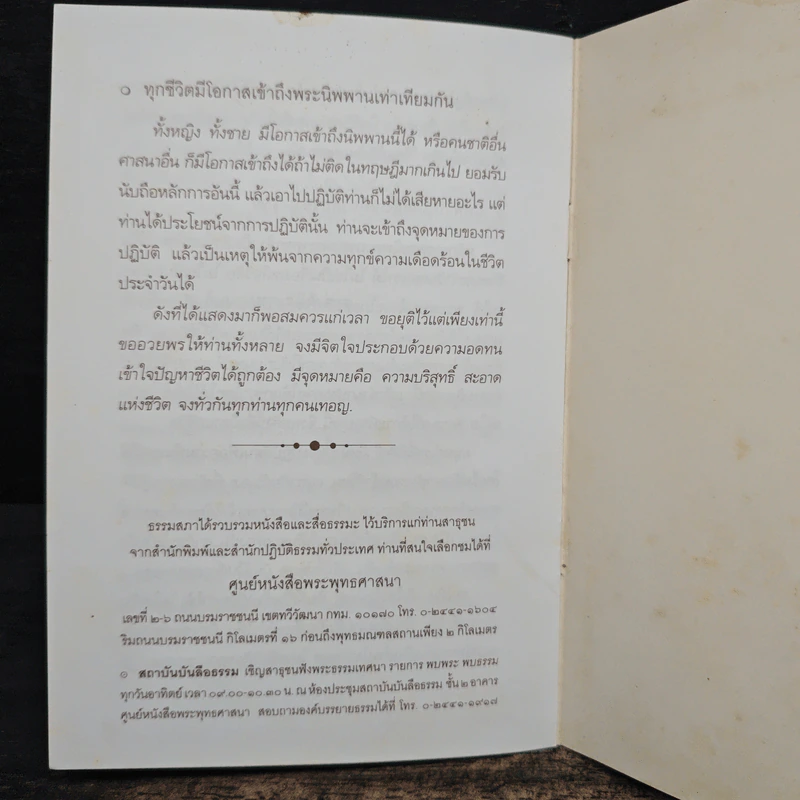 ๐ ทุกชีวิตมีโอกาสเข้าถึงพระนิพพานเท่าเทียมกัน
ทั้งหญิง ทั้งชาย มีโอกาสเข้าถึงนิพพานนี้ได้ หรือคนชาติอื่น
ศาสนาอื่น ก็มีโอกาสเข้าถึงได้ถ้าไม่ติดในทฤษฎีมากเกินไป ยอมรับ
นับถือหลักการอันนี้ แล้วเอาไปปฏิบัติท่านก็ไม่ได้เสียหายอะไร แต่
ท่านได้ประโยชน์จากการปฏิบัตินั้น ท่านจะเข้าถึงจุดหมายของการ
ปฏิบัติ แล้วเป็นเหตุให้พ้นจากความทุกข์ความเดือดร้อนในชีวิต
ประจำวันได้
ดังที่ได้แสดงมาก็พอสมควรแก่เวลา ขอยุติไว้แต่เพียงเท่านี้
ขออวยพรให้ท่านทั้งหลาย จงมีจิตใจประกอบด้วยความอดทน
เข้าใจปัญหาชีวิตได้ถูกต้อง มีจุดหมายคือ ความบริสุทธิ์ สะอาด
แห่งชีวิต จงทั่วกันทุกท่านทุกคนเทอญ.
ธรรมสภาได้รวบรวมหนังสือและสื่อธรรมะ ไว้บริการแก่ท่านสาธุชน
จากสำนักพิมพ์และสำนักปฏิบัติธรรมทั่วประเทศ ท่านที่สนใจเลือกชมได้ที่
ศูนย์หนังสือพระพุทธศาสนา
เลขที่ ๒-๖ ถนนบรมราชชนนี เขตทวีวัฒนา กทม. ๑๐๑๗๐ โทร. ๐-๒๔๔๑-๑๖๐๔
ริมถนนบรมราชชนนี กิโลเมตรที่ ๑๖ ก่อนถึงพุทธมณฑลสถานเพียง ๒ กิโลเมตร
๑ สถาบันบันลือธรรม เชิญสาธุชนฟังพระธรรมเทศนา รายการ พบพระ พบธรรม
ทุกวันอาทิตย์ เวลา ๐๙.๐๐-๑๐.๓๐ น. ณ ห้องประชุมสถาบันบันลือธรรม ชั้น ๒ อาคาร
ศูนย์หนังสือพระพุทธศาสนา สอบถามองค์บรรยายธรรมได้ที่ โทร. ๐-๒๔๔๑-๑๙๑๗